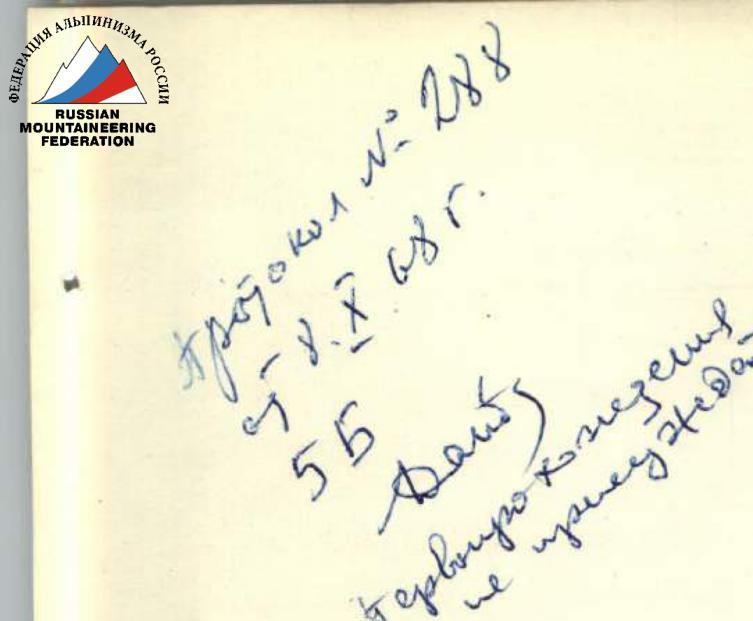 ФЕДЕРАЦИЯ АЛЬПИНИЗМА РОССИИ
RUSSIAN
MOUNTAINEERING
FEDERATION
Протокол № 288
от 8.X 68 г.
5Б
дать
Первопрохождения
не присуждать